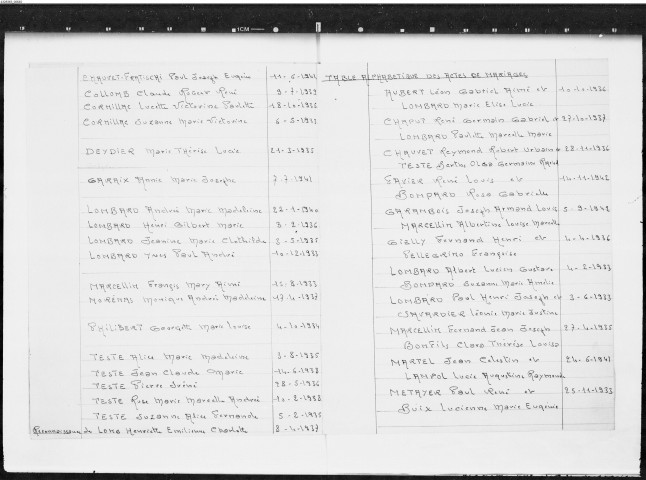 CHAUVET- Paul Joseph Eugène 11-6-1941
COLLOMB Claude Robert René 9-7-1939
CORNILLAC Lucette Victorine Paulette 18-10-1936
CORNILLAC Suzanne Marie Victorine 6-5-1933
DEYDIER Marie Thérèse Lucie 21-3-1935
GARAIX Annie Marie Josephe 7-7-1941
LOMBARD André Marie Madeleine 22-1-1940
LOMBARD Henri Gilbert Marie 8-2-1936
LOMBARD Jeanine Marie Clothilde 8-5-1935
LOMBARD Yves Paul André 10-12-1933
MARCELLIN Francis Mary Aimé 11-8-1933
MORÉNAS Monique Andrée Madeleine 17-4-1937
PHILIBERT Georgette Marie Louise 4-10-1934
TESTE Alice Marie Madeleine 3-8-1935
TESTE Jean Claude Marie 14-6-1938
TESTE Pierre Iréné 28-5-1936
TESTE Rose Marie Marcelle Andrée
TESTE Suzanne Alice Fernande 5-2-1935
Reconnaissance de Henriette Emilienne Charlotte 8-4-1937
TABLE ALPHABETIQUE DES ACTES DE MARIAGES
AUBERT Léon Gabriel Aimé et 10-10-1936
LOMBARD Marie Elise Lucie
CHAPUT René Germain Gabriel et 27-10-1937
LOMBARD Paulette Marcelle Marie
CHAUVET Raymond Robert Urbain et 28-11-1936
TESTE Berthe Olga Germaine
René Louis et 14-11-1942
BOMPARD Rose Gabrielle
GARAMBOIS Joseph Armand Louis 5-9-1942
MARCELLIN Albertine Louise Marcelle
GIELLY Fernand Henri et 4-4-1936
PELLEGRINO Françoise
LOMBARD Albert Lucien Gustave 4-2-1933
BOMPARD Suzanne Marie Amélie
LOMBARD Paul Henri Joseph et 3-6-1933
Léonie Marie Justine
MARCELLIN Fernand Jean Joseph 27-4-1935
BONFILS Clara Thérèse Louise
MARTEL Jean Celestin et 24-6-1941
Lucie Augustine Raymonde
METAYER Paul René et 25-11-1933
BUIX Lucienne Marie Eugénie